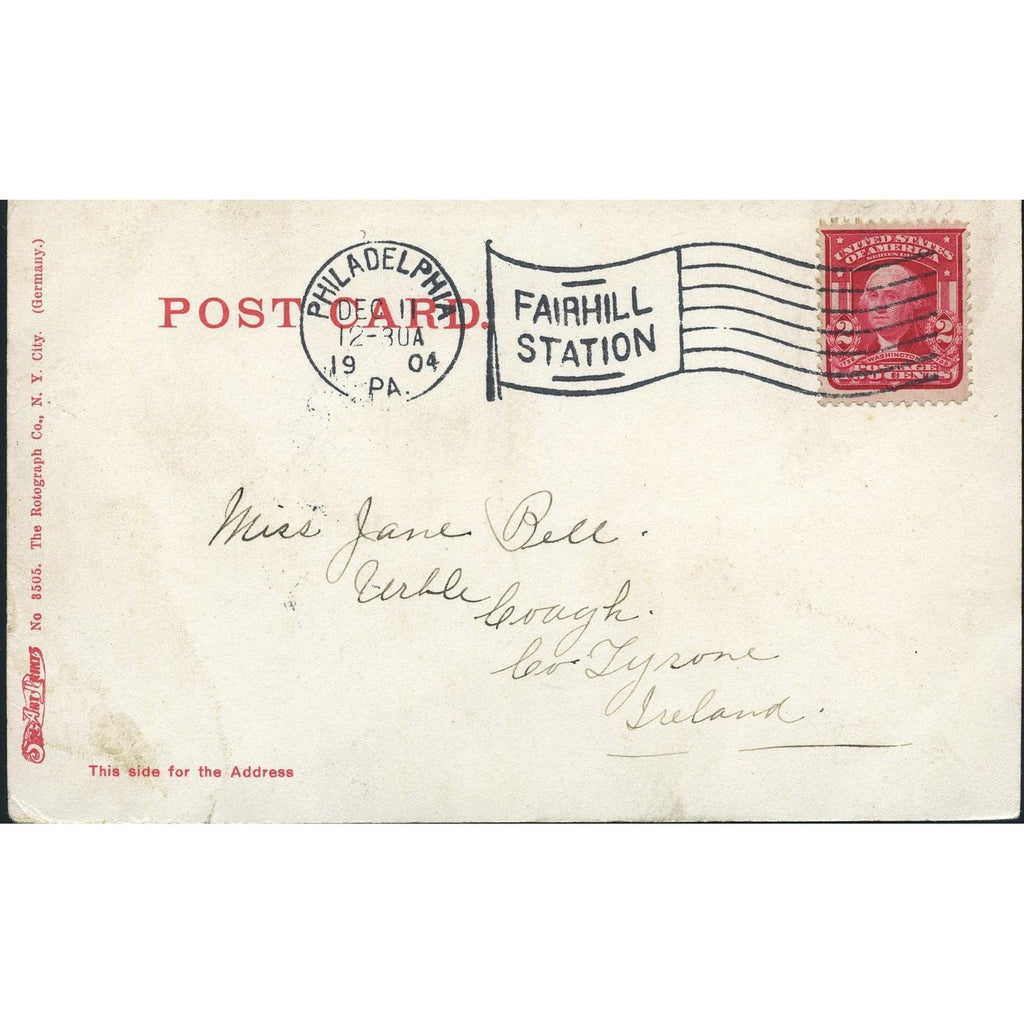 POST CARD.
PHILADELPHIA
DEC 11
12-30A
19 04
PA.
FAIRHILL
STATION
UNITED STATES
OF AMERICA
2 2
WASHINGTON
POSTAGE
TWO CENTS
Miss Jane Bell.
Urble
Coagh.
Co Tyrone
Ireland.
No 3505. The Rotograph Co., N. Y. City. (Germany.)
This side for the Address